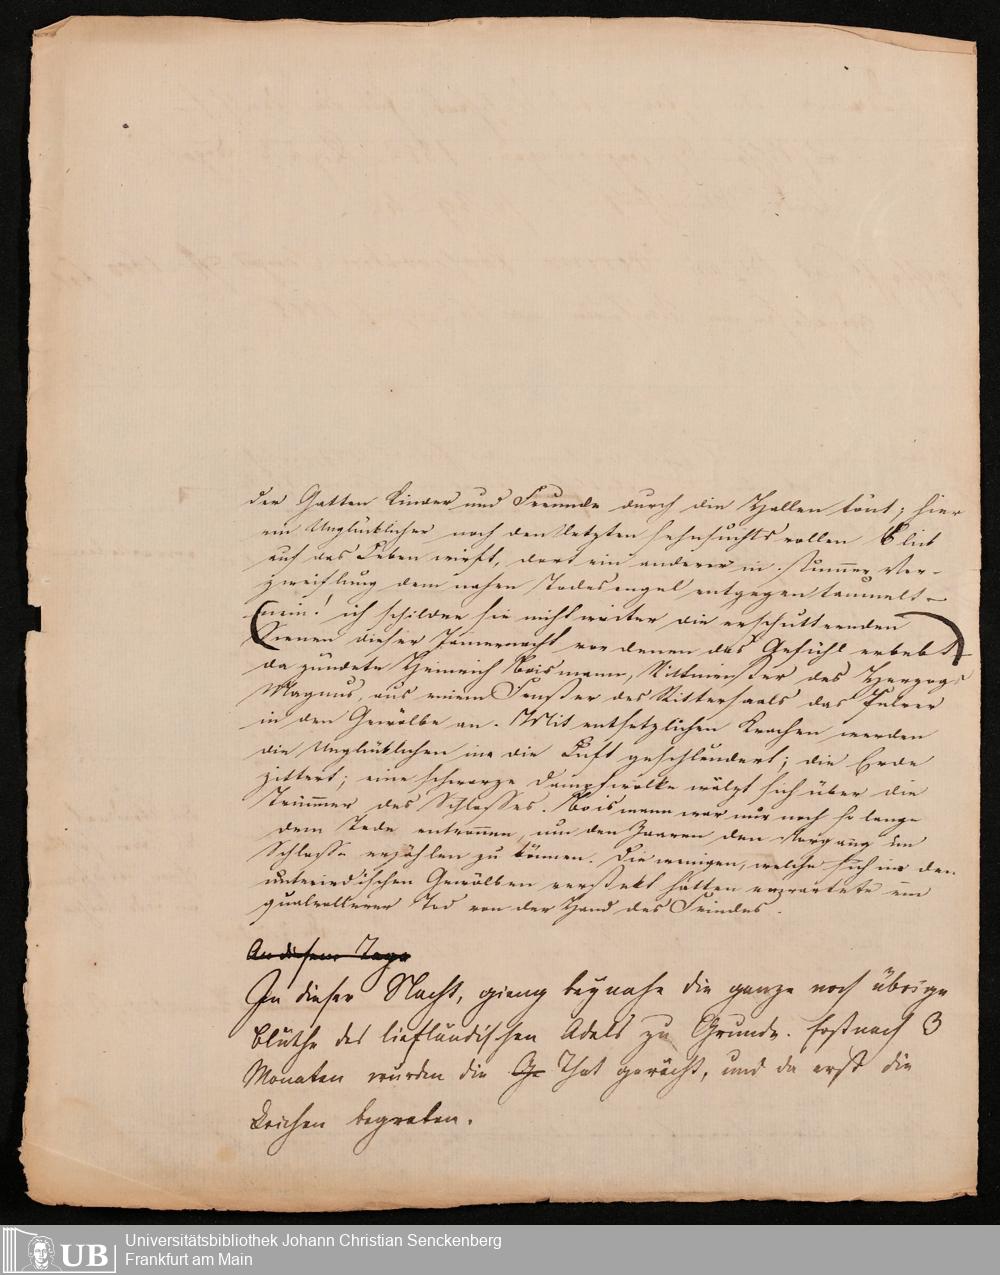 der Gatten Kinder und Freunde durch die Hallen tönt; hier
ein Unglücklicher noch den letzten sehnsuchtsvollen Blick
auf das Leben wirft, dort ein anderer in stummer Ver-
zweiflung dem nahen Todesengel entgegen taumelt –
nein! ich schildere sie nicht weiter die erschütternden
Scenen dieser Jammernacht vor denen das Gefühl erbebt –
da zündete Heinrich Boismann, Rittmeister des Herzogs
Magnus, aus einem Fenster des Rittersaals das Pulver
in den Gewölbe an. Mit entsetzlichen Krachen werden
die Unglücklichen in die Luft geschleudert; die Erde
zittert; eine schwarze Dampfwolke wälzt sich über die
Trümmer des Schlosses. Boismann war nur noch so lange
dem Tode entronnen, um den Zaaren den Vorgang im
Schlosse erzählen zu können. Die wenigen, welche sich in den
unterirdischen Gewölben versteckt hatten erwartete ein
qualvollerer Tod von der Hand des Feindes.
An diesem Tage
In dieser Nacht, gieng beynahe die ganze noch übrige
Blüthe des liefländischen Adels zu Grunde. Erst nach 3
Monaten wurden die That gerächt, und da erst die
Leichen begraben.
UB
Universitätsbibliothek Johann Christian Senckenberg
Frankfurt am Main